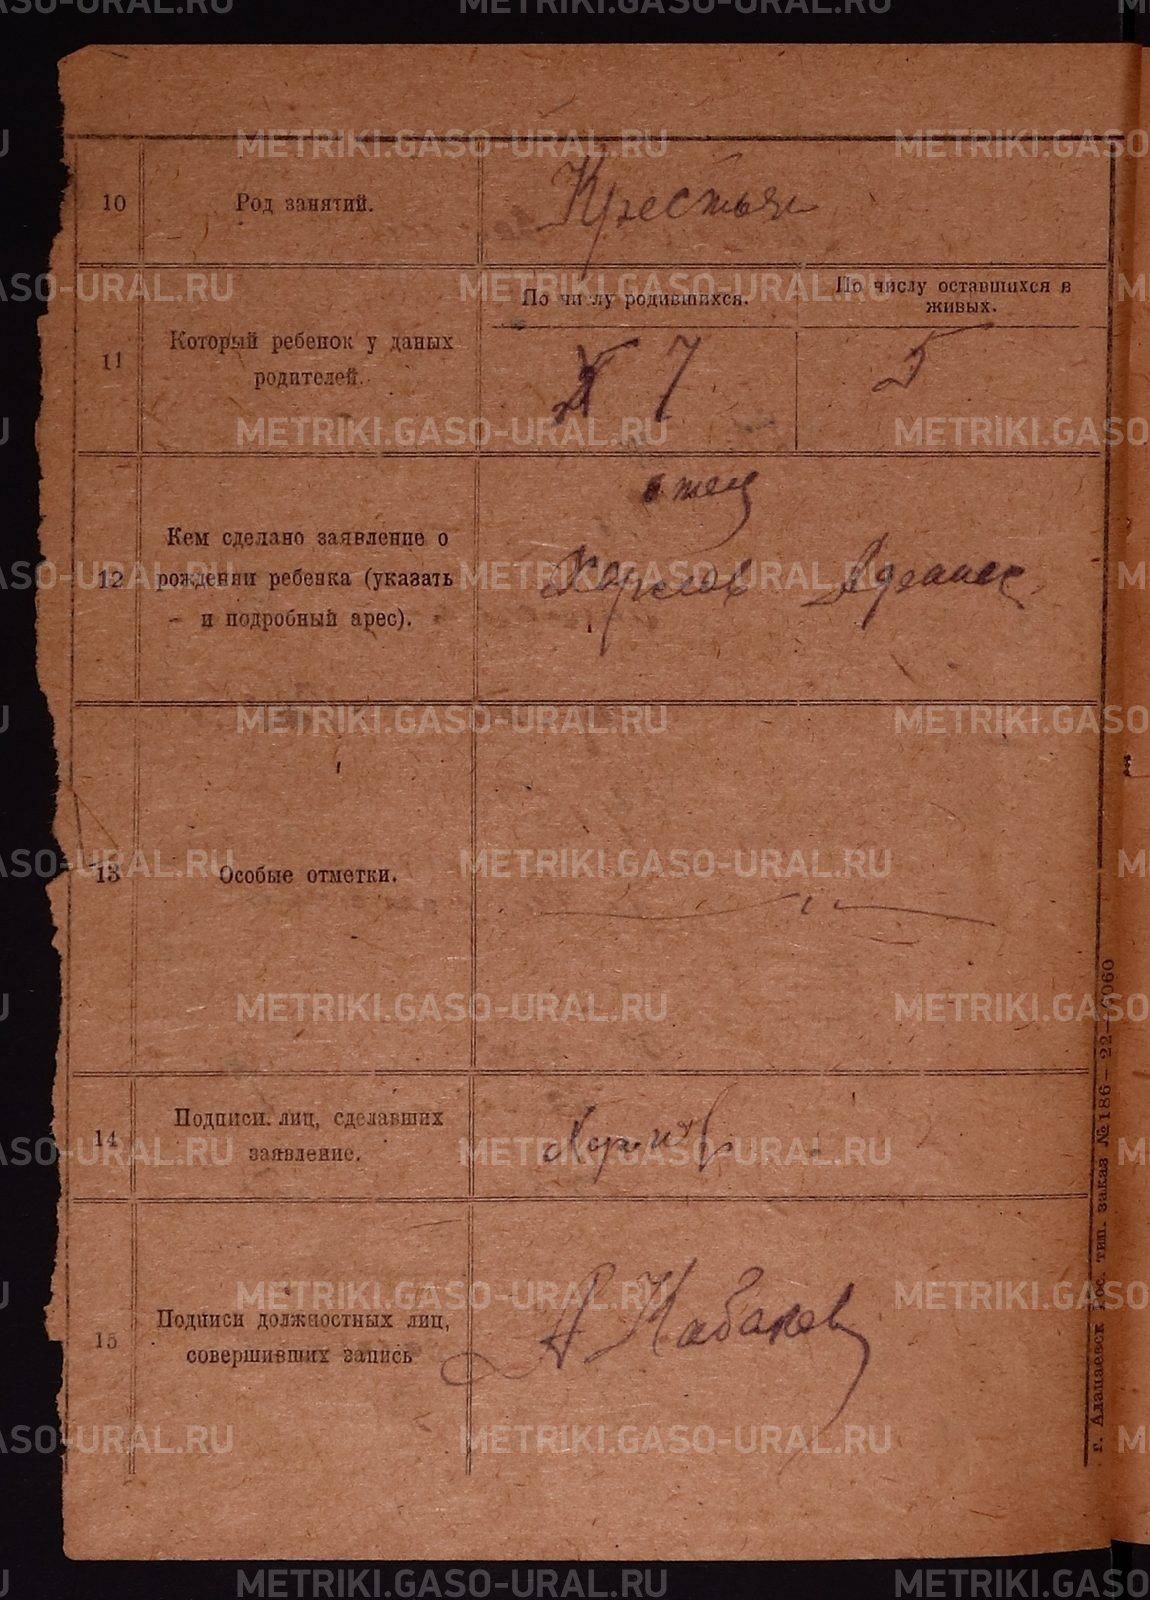 10
Род занятий.
Крестьян
11
Который ребенок у даных
родителей.
По числу родившихся.
По числу оставшихся в
живых.
7
5
12
Кем сделано заявление о
рождении ребенка (указать
и подробный арес).
отец
13
Особые отметки.
14
Подписи лиц, сделавших
заявление.
15
Подписи должностных лиц,
совершивших запись
г. Алапаевск Гос. тип. заказ № 186—22—6060
METRIKI.GASO-URAL.RU